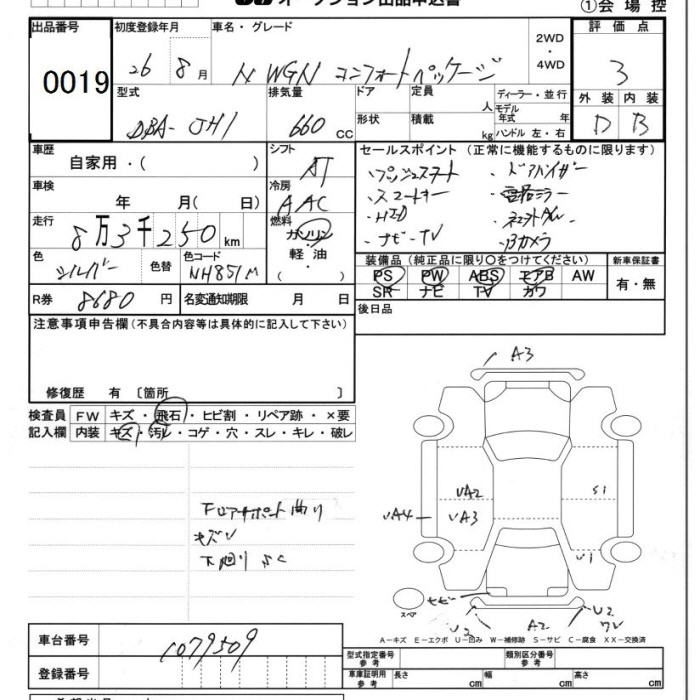 オークション出品申込書
①会場控
出品番号 初度登録年月 車名・グレード 2WD・4WD 評価点
0019 26 8月 N WGN コンフォートパッケージ 3
型式 排気量 ドア 定員 ディーラー・並行 外装 内装
DBA-JH1 660 CC 形状 積載 人 kg モデル年式 年 ハンドル 左・右 D B
車歴 自家用・( ) シフト AT セールスポイント (正常に機能するものに限ります)
車検 年 月( 日) 冷房 AAC
・プッシュスタート ・ドアバイザー
・スマートキー ・電格ミラー
・HID
・ナビ・TV ・Bカメラ
走行 8万3千250km 燃料 ガソリン 軽・油 ( )
色 シルバー 色替 色コード NH851M
装備品 (純正品に限り○をつけてください) 新車保証書
PS PW ABS エアB AW 有・無
SR ナビ TV カワ
R券 8680円 名変通知期限 月 日
後日品
注意事項申告欄 (不具合内容等は具体的に記入して下さい)
修復歴 有 〔箇所 〕
検査員記入欄 FW キズ・飛石・ヒビ割・リペア跡・×要
内装 キズ・汚れ・コゲ・穴・スレ・キレ・破レ
Fロアサポート曲り
キズU
下廻りSC
A3
UA2 S1
UA4 UA3
U1
スペア
U2 A2 U2
A-キズ E-エクボ U-凹み W-補修跡 S-サビ C-腐食 XX-交換済
車台番号 1079509
登録番号
型式指定番号 参考 類別区分番号 参考
車庫証明用 参考 長さ cm 幅 cm 高さ cm